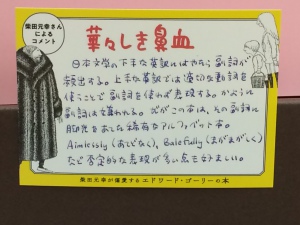 柴田元幸さん
による
コメント
華々しき鼻血
日本文学の下手な英訳にはやたら副詞が
頻出する。上手な英訳では適切な動詞を
使うことで副詞を使わず表現する。かように
副詞は嫌われる。だがこの本は、その副詞に
脚光をあてた稀有なアルファベット本。
Aimlessly (あてどなく), Balefully (まがまがしく)
など否定的な表現が多い点も好ましい。
柴田元幸が偏愛するエドワード・ゴーリーの本